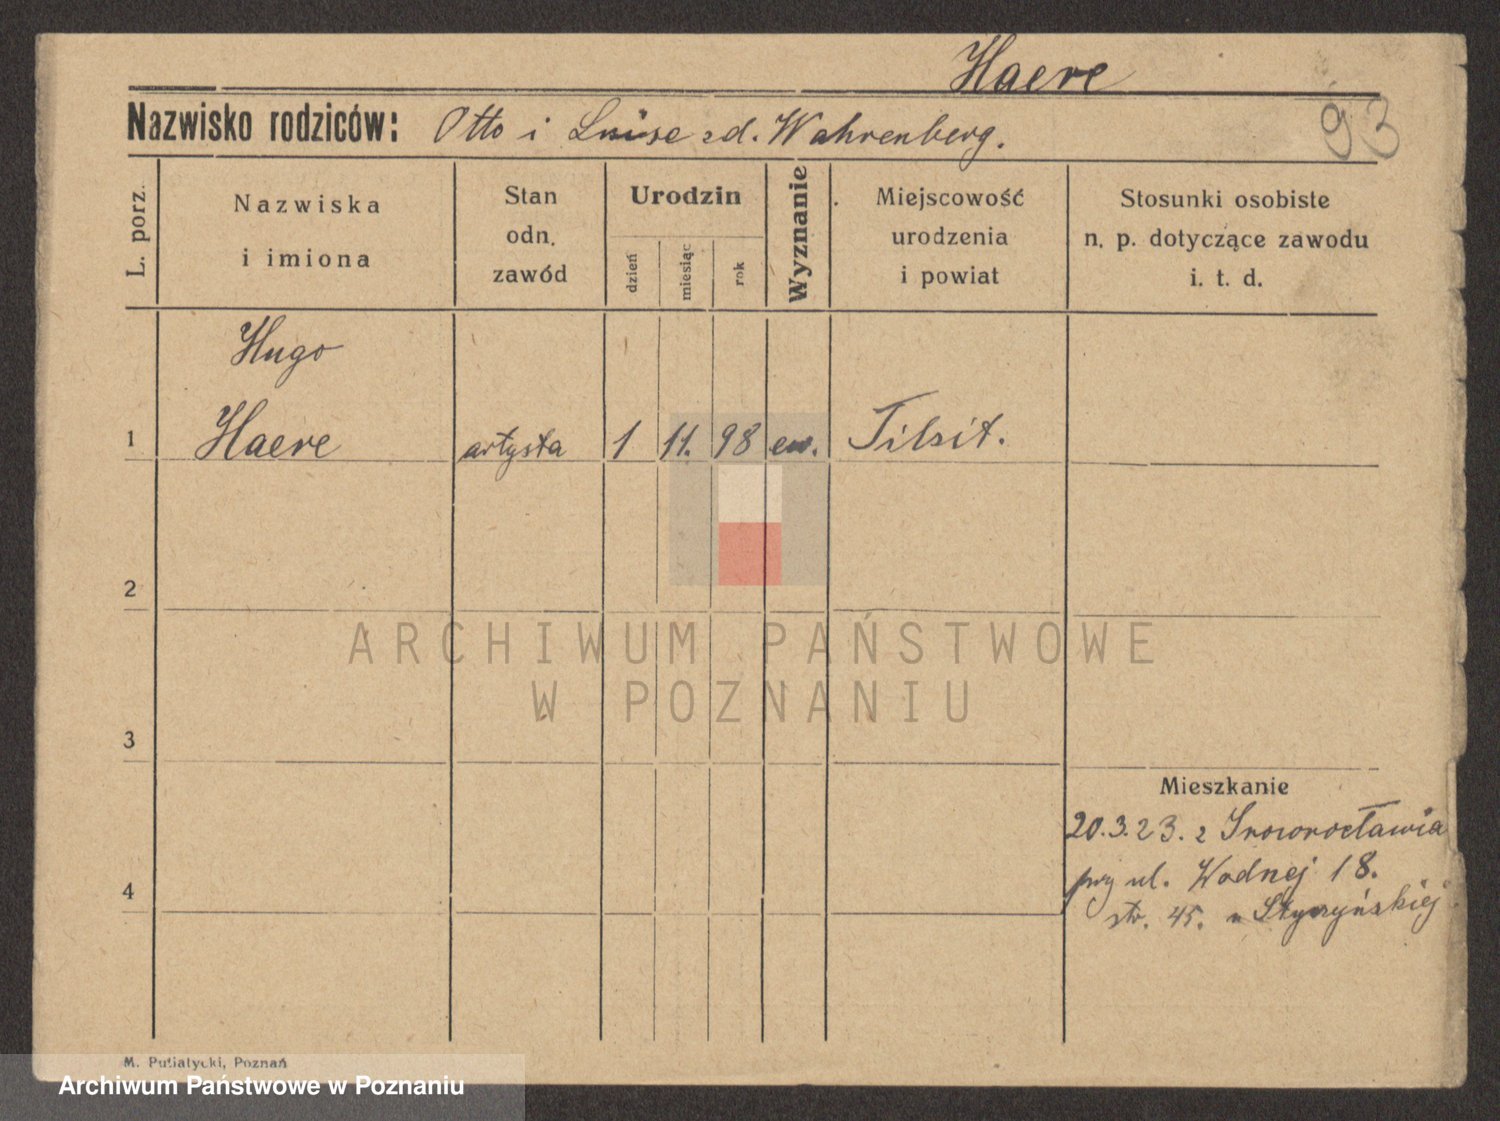 Haere
93
Nazwisko rodziców: Otto i Luise zd. Wahrenberg.
L. porz.
Nazwiska
i imiona
Stan
odn.
zawód
Urodzin
dzień
miesiąc
rok
Wyznanie
Miejscowość
urodzenia
i powiat
Stosunki osobiste
n. p. dotyczące zawodu
i. t. d.
Hugo
1 Haere artysta 1 11. 98 ew. Tilsit.
2
ARCHIWUM PAŃSTWOWE
W POZNANIU
3
Mieszkanie
20.3.23. z Inowrocławia
przy ul. Wodnej 18.
4
str. 45. u
M. Putiatycki, Poznań
Archiwum Państwowe w Poznaniu